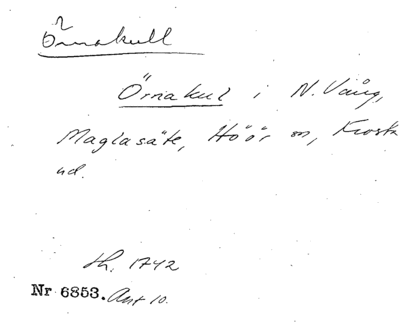 Örnakull
Örnakul i N. Vång,
Maglasäte, Höör sn, Frosta
hd.
th. 1742
Nr 6853. Ant 10.